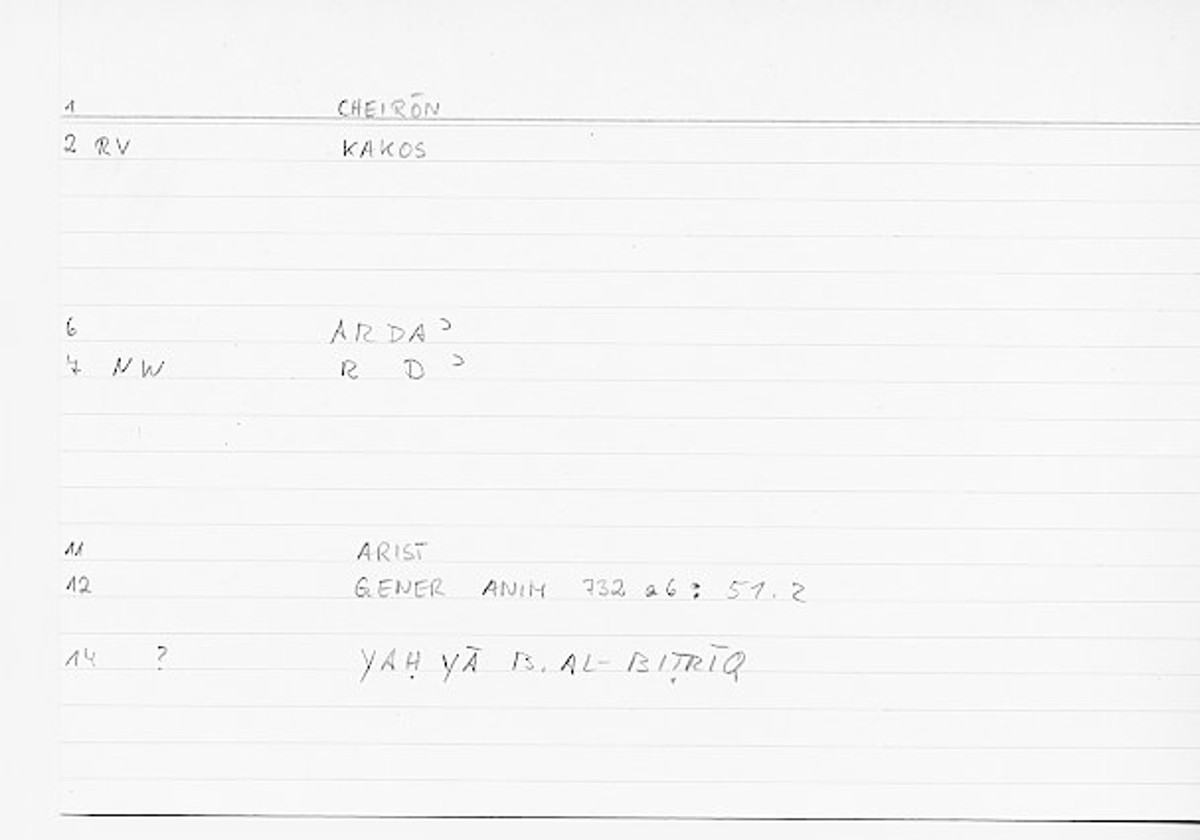 1 CHEIRŌN
2 RV KAKOS
6 ARDAʾ
7 NW R D ʾ
11 ARIST
12 GENER ANIM 732 a6 : 51.2
14 ? YAḤYĀ B. AL-BIṬRĪQ